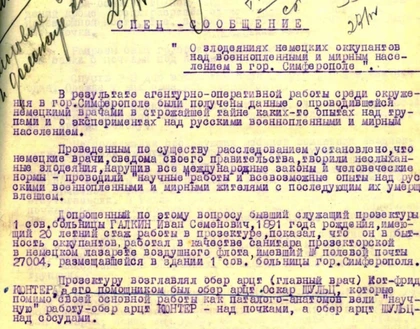 СПЕЦ-СООБЩЕНИЕ
" О злодеяниях немецких оккупантов
над военнопленными и мирным насе-
лением в гор. Симферополе ".
В результате агентурно-оперативной работы среди окруже-
ния в гор.Симферополе были получены данные о проводившейся
немецкими врачами в строжайшей тайне каких-то опытах над тру-
пами и о экспериментах над русскими военнопленными и мирным
населением.
Проведенным по существу расследованием установлено,что
немецкие врачи,сведома своего правительства,творили неслыхан-
ные злодеяния,нарушив все международные законы и человеческие
нормы - проводили "научные" работы и всевозможные опыты над рус
скими военнопленными и мирными жителями с последующим их умерщ
влением.
Допрошенный по этому вопросу бывший служащий прозектуры
1 сов.больницы ГАЛКИН Иван Семенович,1891 года рождения,имею-
щий 20 летний стаж работы в прозектуре,показал, что он в быт-
ность оккупантов,работал в качестве санитара прозекторской
в немецком лазарете воздушного флота,имевший № полевой почты
27004, размещавшейся в здании 1 сов. больницы гор.Симферополя.
Прозектуру возглавлял обер арцт (главный врач) Кот-фрид
КЮНТЕР, а его помощником был обер арцт Оскар ШУЛЬЦ, которые
помимо своей основной работы как паталого-анатома вели "науч-
ную" работу-обер арцт КЮНТЕР - над почками, а обер арцт ШУЛЬЦ
над сосудами.